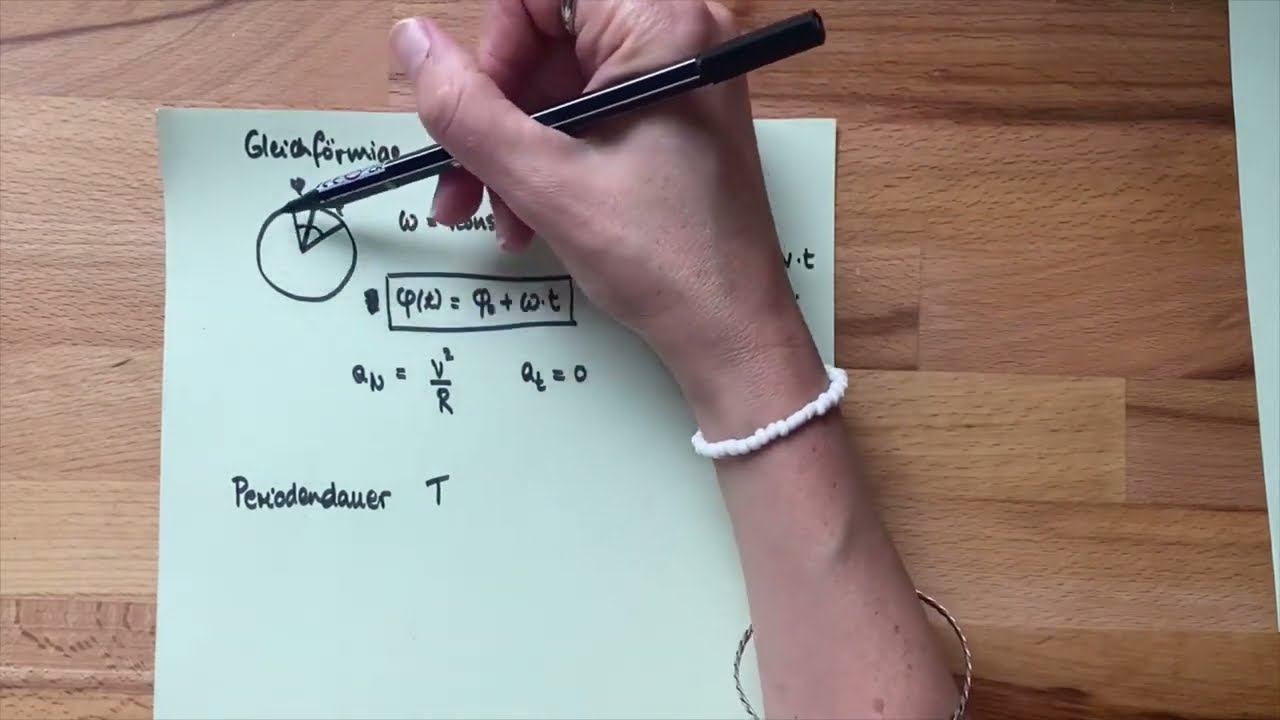 Gleichförmige
ω =
v·t
φ(t) = φ₀ + ω·t
a_N = v²/R a_t = 0
Periodendauer T